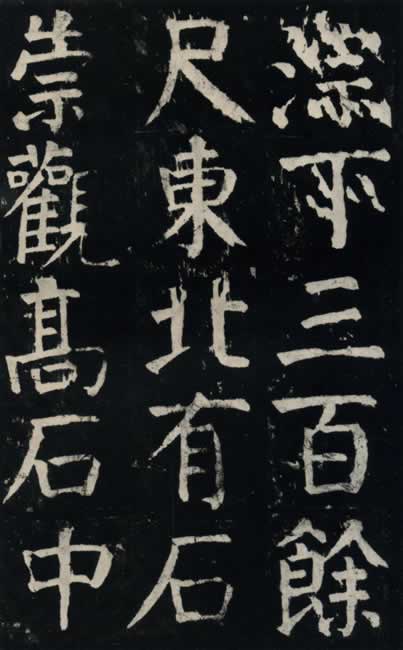 淙下三百餘
尺東北有石
崇觀髙石中